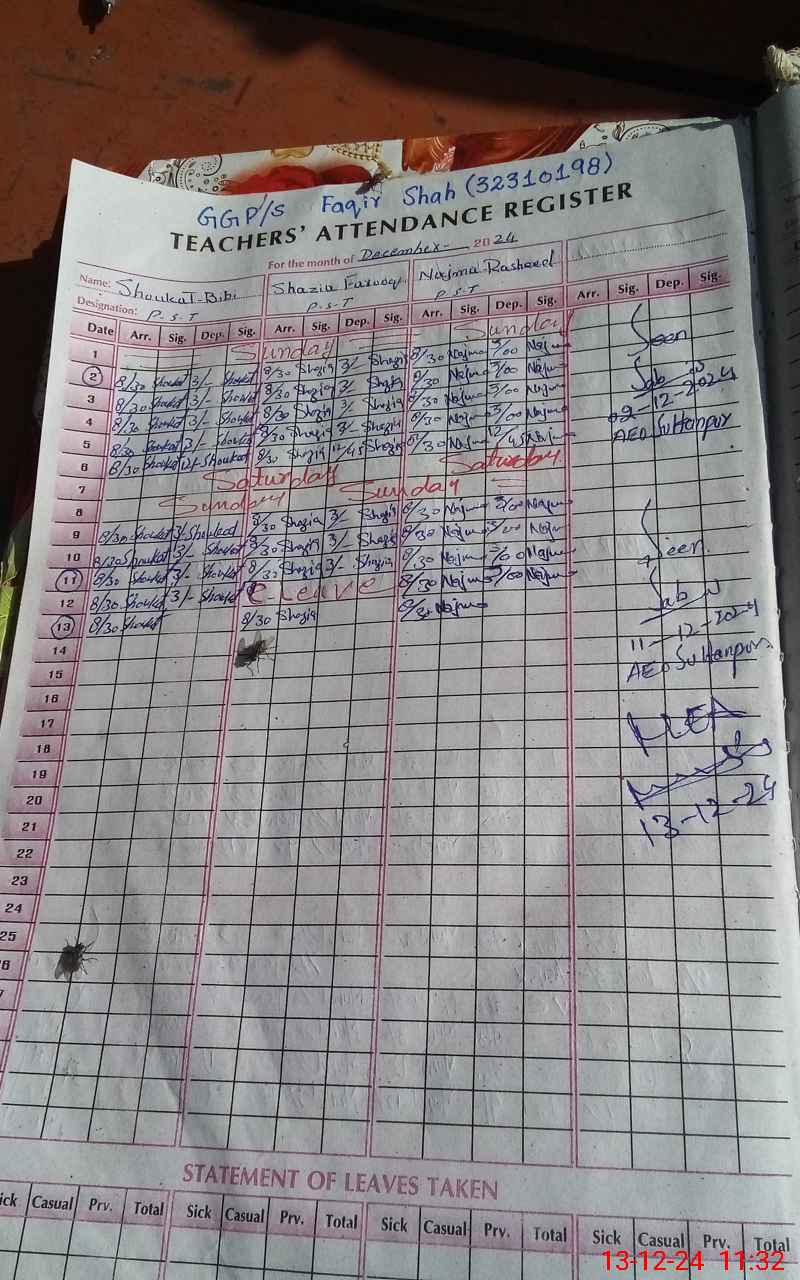 GGP/S Faqir Shah (32310198)
TEACHERS' ATTENDANCE REGISTER
For the month of December 2024
Name: Shoukat Bibi Shazia Farooq Najma Rasheed
Designation: P.S.T P.S.T P.S.T
Date Arr. Sig. Dep. Sig. Arr. Sig. Dep. Sig. Arr. Sig. Dep. Sig. Arr. Sig. Dep. Sig.
1 Sunday Sunday
2 8/30 Shoukat 3/- Shoukat 8/30 Shazia 3/- Shazia 8/30 Najma 3/00 Najma
3 8/30 Shoukat 3/- Shoukat 8/30 Shazia 3/- Shazia 8/30 Najma 3/00 Najma
4 8/30 Shoukat 3/- Shoukat 8/30 Shazia 3/- Shazia 8/30 Najma 3/00 Najma
5 8/30 Shoukat 3/- Shoukat 8/30 Shazia 3/- Shazia 8/30 Najma 3/00 Najma
6 8/30 Shoukat Shoukat 8/30 Shazia 12/45 Shazia 8/30 Najma 12/45 Najma
7 Saturday Saturday
8 Sunday Sunday
9 8/30 Shoukat 3/- Shoukat 8/30 Shazia 3/- Shazia 8/30 Najma 3/00 Najma
10 8/30 Shoukat 3/- Shoukat 8/30 Shazia 3/- Shazia 8/30 Najma 3/00 Najma
11 8/30 Shoukat 3/- Shoukat 8/30 Shazia 3/- Shazia 8/30 Najma 3/00 Najma
12 8/30 Shoukat 3/- Shoukat C-Leave 8/30 Najma 3/00 Najma
13 8/30 Shoukat 8/30 Shazia 8/30 Najma
14
15
16
17
18
19
20
21
22
23
24
25
Seen
02-12-2024
AEO Sultanpur
Seen
11-12-2024
AEO Sultanpur
MEA
13-12-24
STATEMENT OF LEAVES TAKEN
Sick Casual Prv. Total Sick Casual Prv. Total Sick Casual Prv. Total Sick Casual Prv. Total
13-12-24 11:32